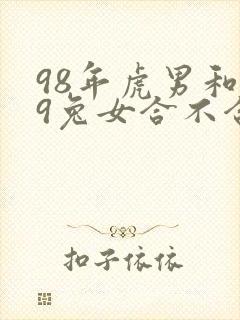 98年虎男和
9兔女合不合
扣子依依